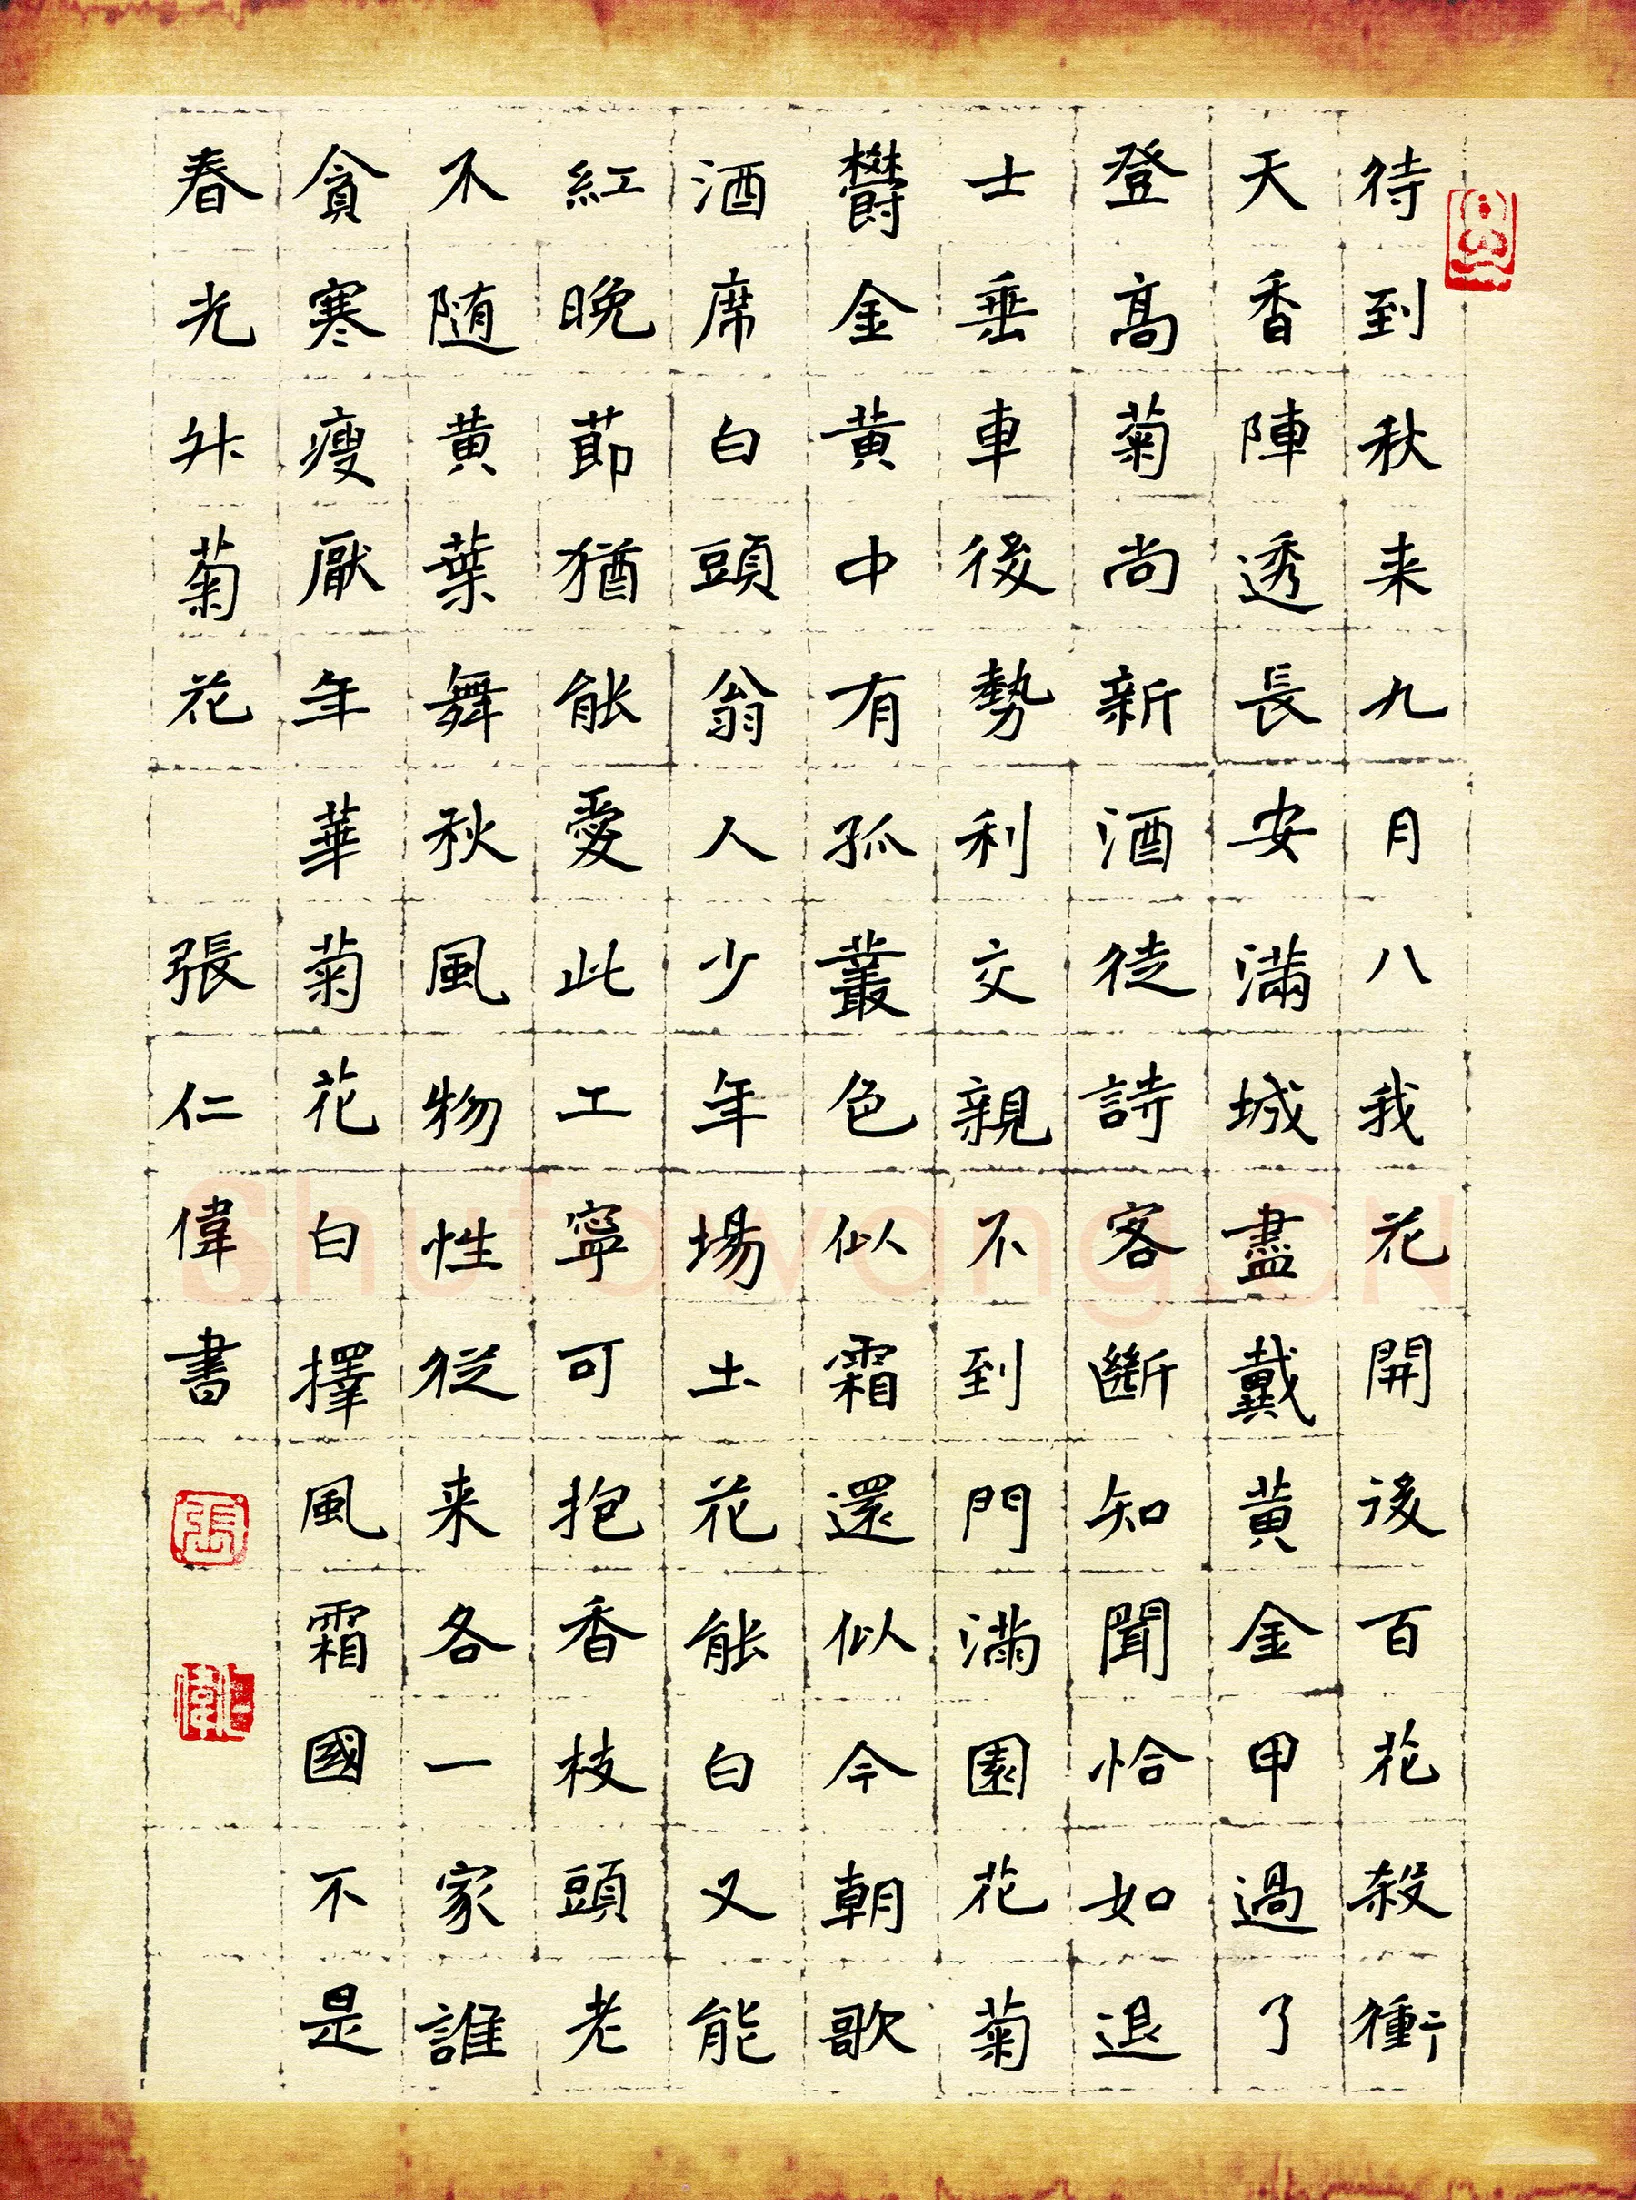 待到秋来九月八我花開後百花殺衝
天香陣透長安滿城盡戴黄金甲過了
登高菊尚新酒徒詩客斷知聞恰如退
士垂車後勢利交親不到門滿園花菊
鬱金黄中有孤叢色似霜還似今朝歌
酒席白頭翁人少年場土花能白又能
紅晚節猶能愛此工寧可抱香枝頭老
不随黄葉舞秋風物性從来各一家誰
貪寒瘦厭年華菊花白擇風霜國不是
春光外菊花 張仁偉書
Shufawang.CN